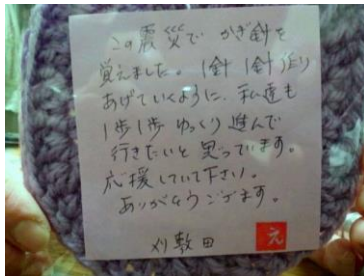 この震災で かぎ針を
覚えました。1針 1針 作り
あげていくように、私達も
1歩1歩 ゆっくり 進んで
行きたいと 思っています。
応援していて下さい。
ありがとうございます。
刈敷田
え